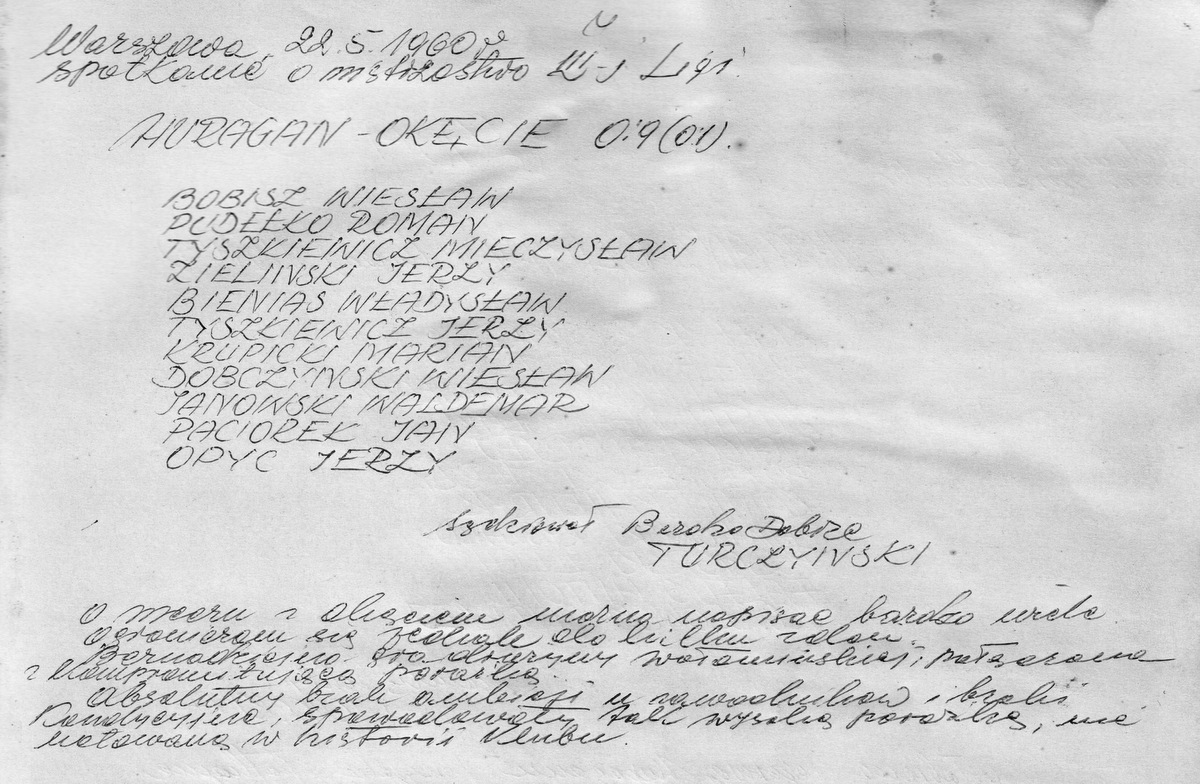 Warszawa, 22.5.1960 r
spotkanie o mistrzostwo III-j Ligi.
HURAGAN - OKĘCIE 0:9 (0:1).
BOBISZ WIESŁAW
PUDEŁKO ROMAN
TYSZKIEWICZ MIECZYSŁAW
ZIELINSKI JERZY
BIENIAS WŁADYSŁAW
TYSZKIEWICZ JERZY
KRUPICKI MARIAN
DOBCZYNSKI WIESŁAW
JANOWSKI WALDEMAR
PACIOREK JAN
OPYC JERZY
Sędziował Bardzo Dobrze
TURCZYINSKI
O meczu z Okęciem można napisać bardzo wiele
ograniczam się jednak do kilku zdań.
Beznadziejna gra drużyny wołomińskiej, połączona
z kompromitującą porażką.
Absolutny brak ambicji u zawodników i braki
Kondycyjne, spowodowały tak wysoką porażkę, nie
notowaną w historii Klubu.